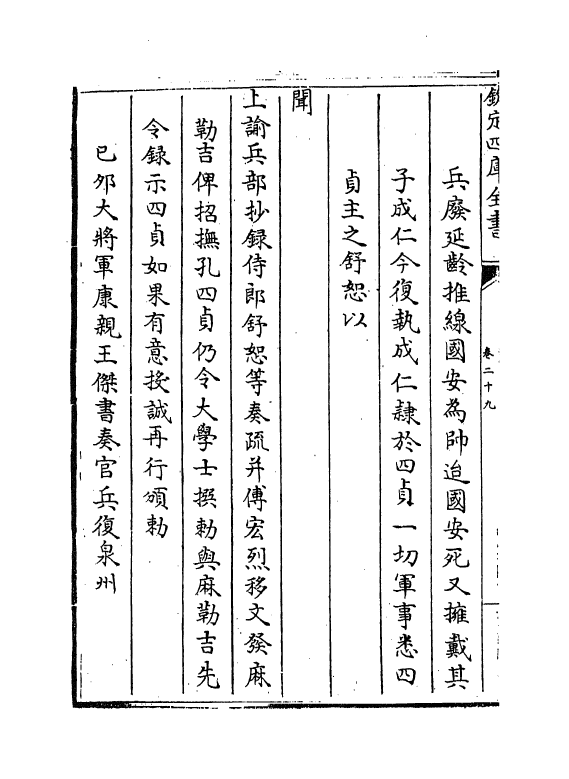 欽定四庫全書
卷二十九
兵廢延齡推線國安為帥迨國安死又擁戴其
子成仁今復執成仁隸於四貞一切軍事悉四
貞主之舒恕以
聞
上諭兵部抄錄侍郎舒恕等奏疏并傅宏烈移文發麻
勒吉俾招撫孔四貞仍令大學士撰勅與麻勒吉先
令録示四貞如果有意投誠再行頒勅
己夘大將軍康親王傑書奏官兵復泉州